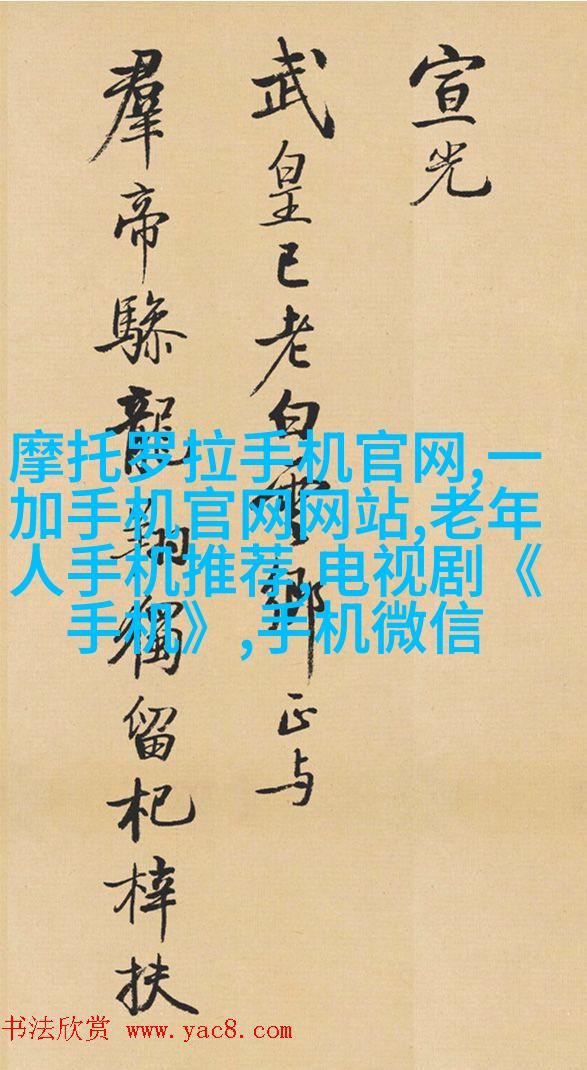 宣光
武皇已老白雲鄉正与
羣帝驂龍翔獨留杞梓扶
摩托罗拉手机官网,一
加手机官网网站,老年
人手机推荐,电视剧《
手机》,手机微信
书法欣赏 www.yac8.com